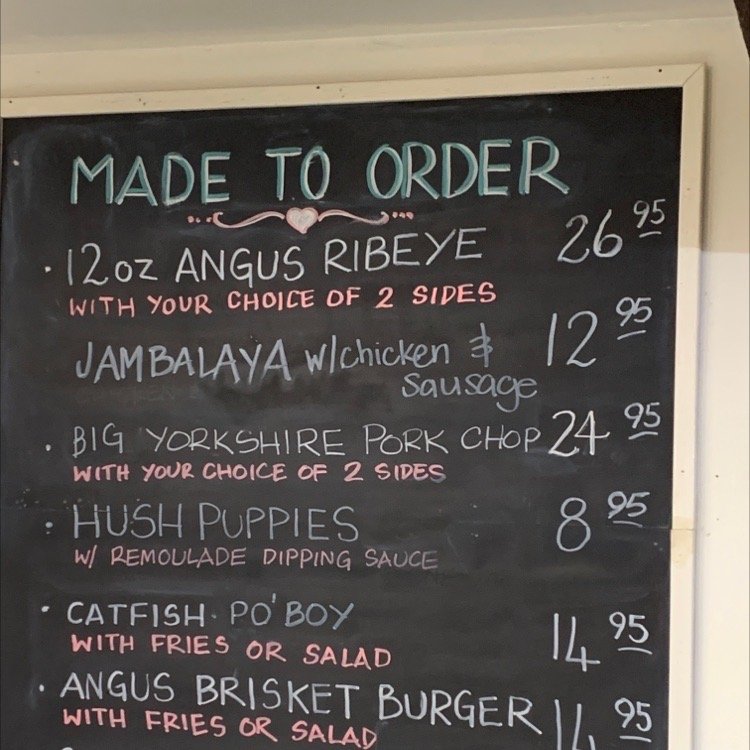 MADE TO ORDER
· 12oz ANGUS RIBEYE 26 95
WITH YOUR CHOICE OF 2 SIDES
JAMBALAYA w/chicken & 12 95
sausage
· BIG YORKSHIRE PORK CHOP 24 95
WITH YOUR CHOICE OF 2 SIDES
· HUSH PUPPIES 8 95
W/ REMOULADE DIPPING SAUCE
· CATFISH PO'BOY 14 95
WITH FRIES OR SALAD
· ANGUS BRISKET BURGER 95
WITH FRIES OR SALAD